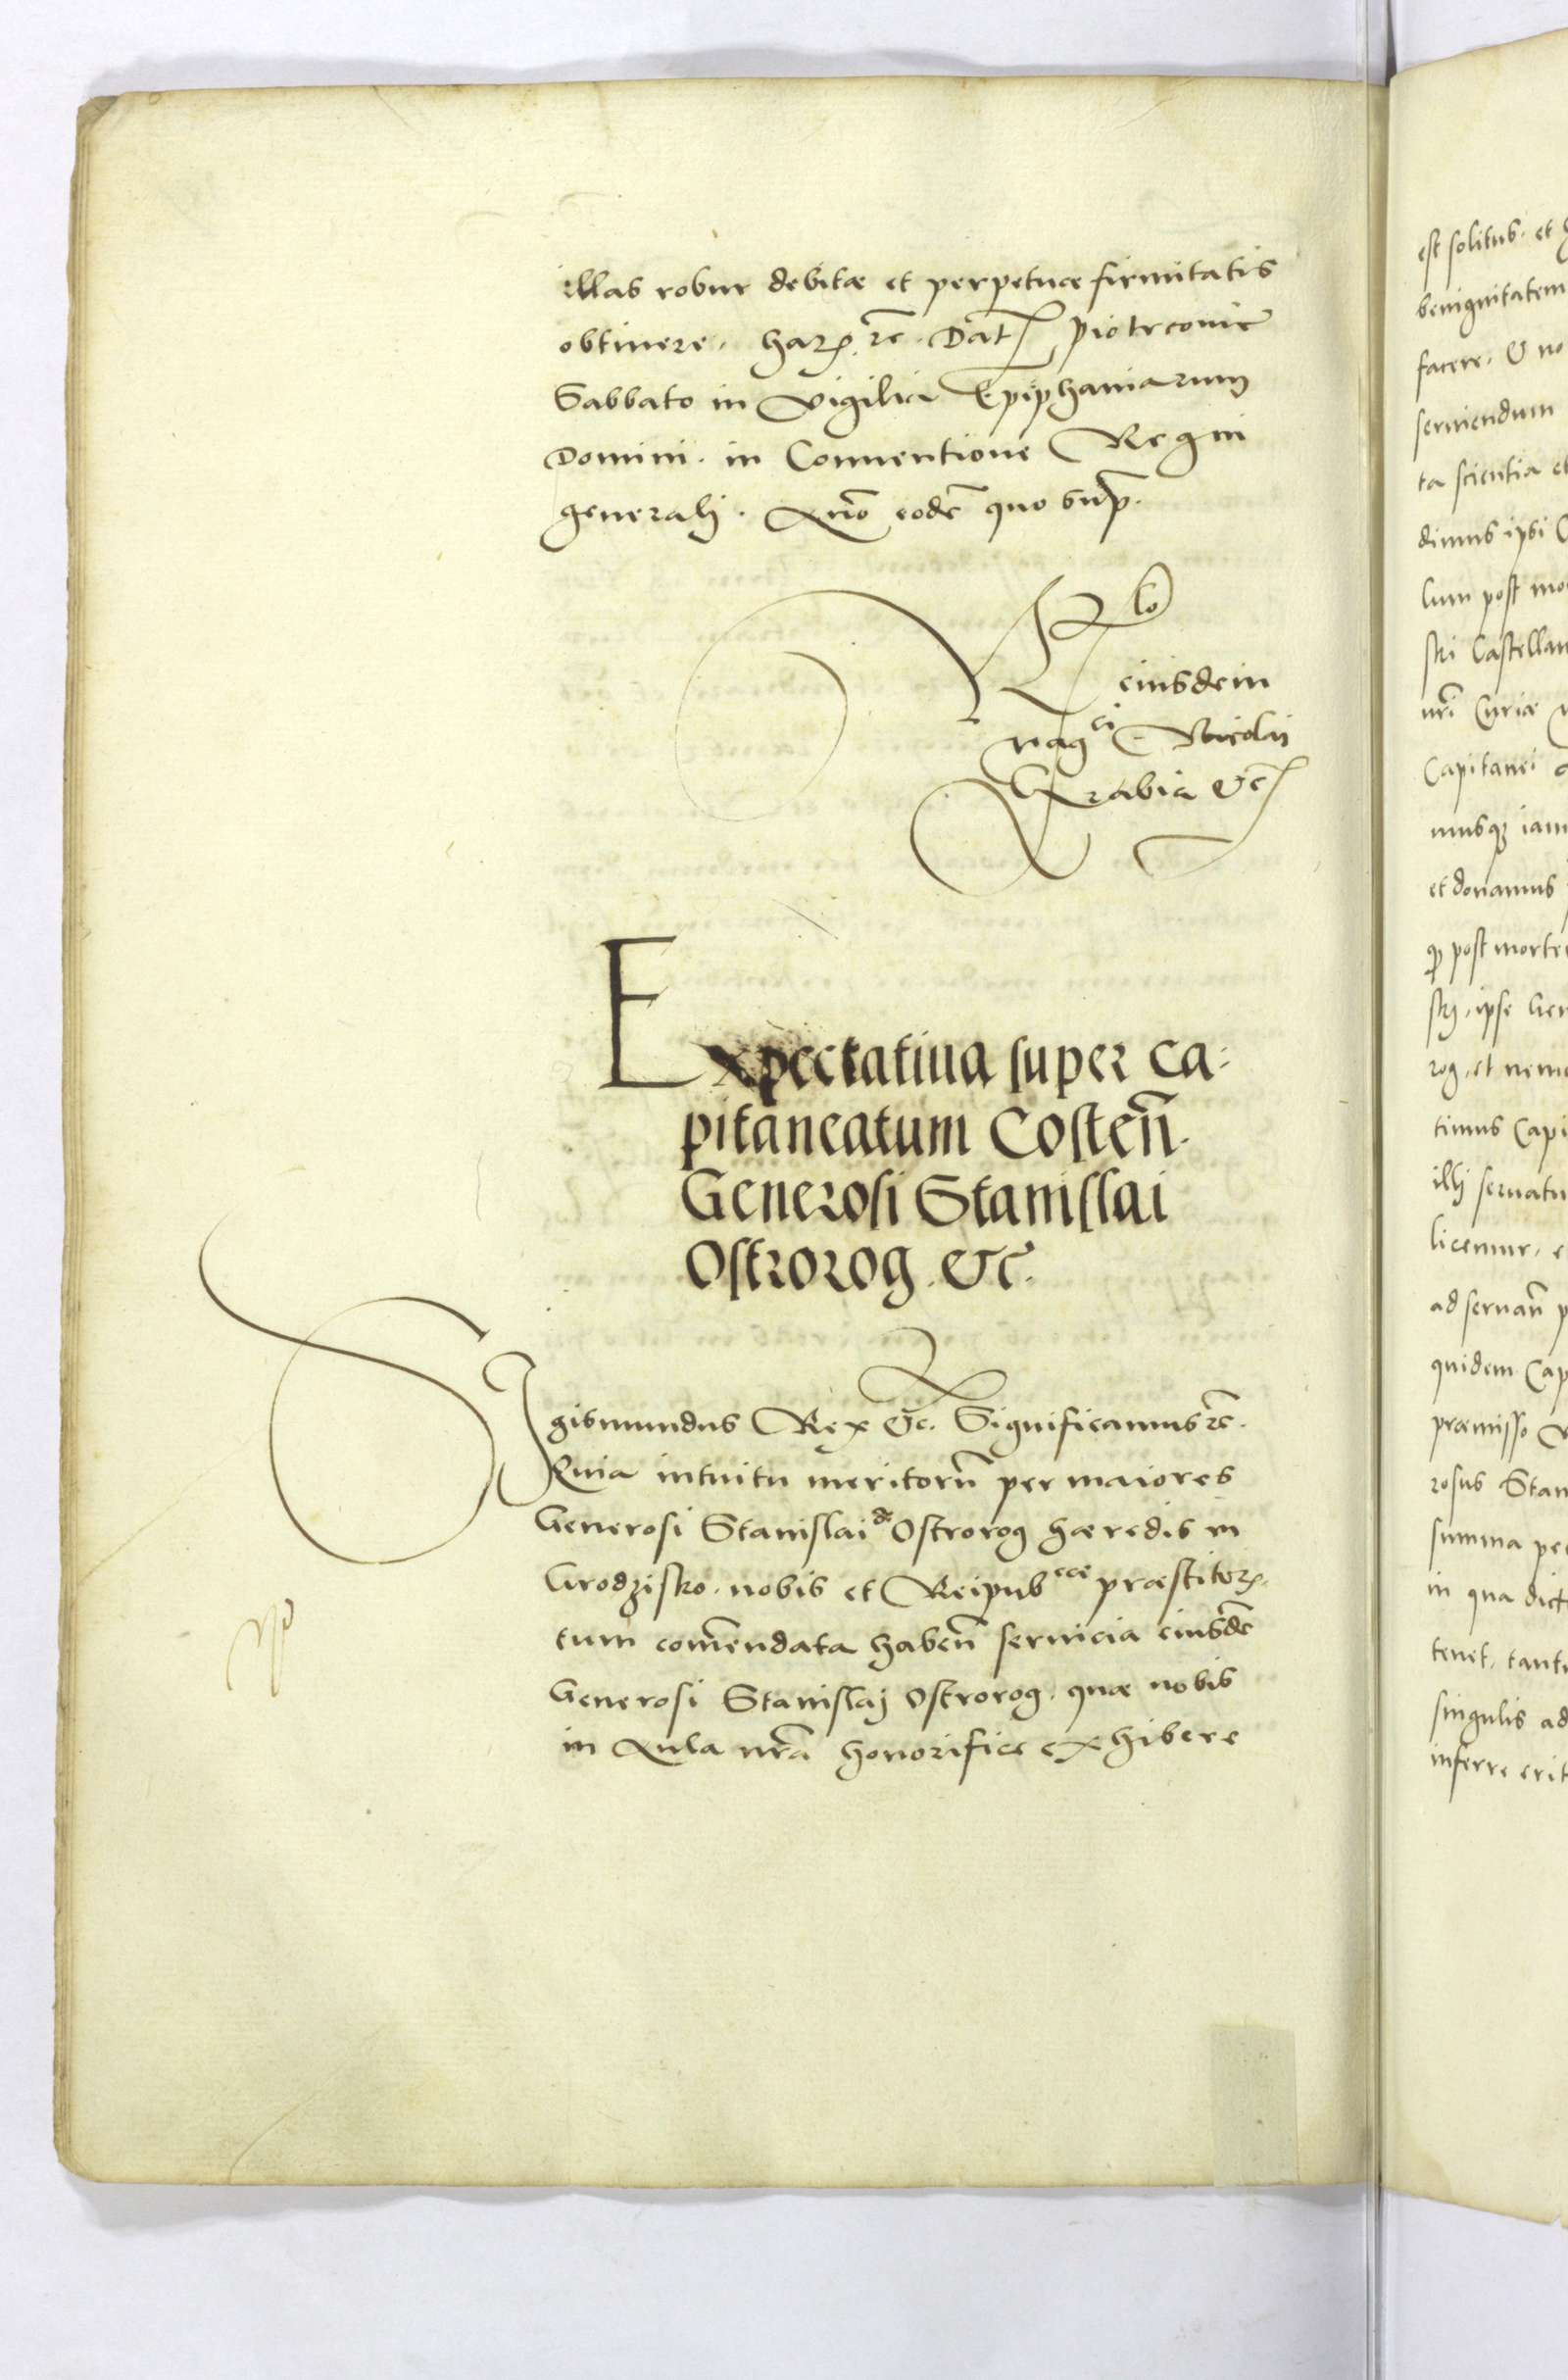 illas robur debitæ et perpetuæ firmitatis
obtinere. harꝝ. rc. Dat. Piotrcovie
Sabbato in Vigilia Epiphaniarum
Domini. in Conventione Regni
generalj. Anō eodē quo sup̄.
Rlo
eiusdem
Magci Nicolai
Hrabia &c
Expectatiua super Ca⸗
pitaneatum Costeñ.
Generosi Stanislai
Ostrorog. &c.
SIgismundus Rex &c. Significamus rc.
Quia intuitu meritorū per maiores
Generosi Stanislai de Ostrorog hæredis in
Grodzisko. nobis et Reipubcæ præstitorꝝ.
tum comēndata habeñ seruicia eiusdē
Generosi Stanislaj Ostrorog. quæ nobis
in Aula nrā honorifice exhibere
est solitus. et
benignitatem
facere. & no
seruiendum
ta scientia et
dimus ipsi
lum post mo
ski Castellan
nrī Curiæ
Capitanei
musqꝫ iam
et donamus
ꝙ post morte
skj. ipse Gen
rog. et nem
timus Capi
illj seruatu
licemur. e
ad seruañ p
quidem Cap
præmisso
rosus Stan
summa pe
in qua dict
tenet. tant
singulis ad
inferre erit